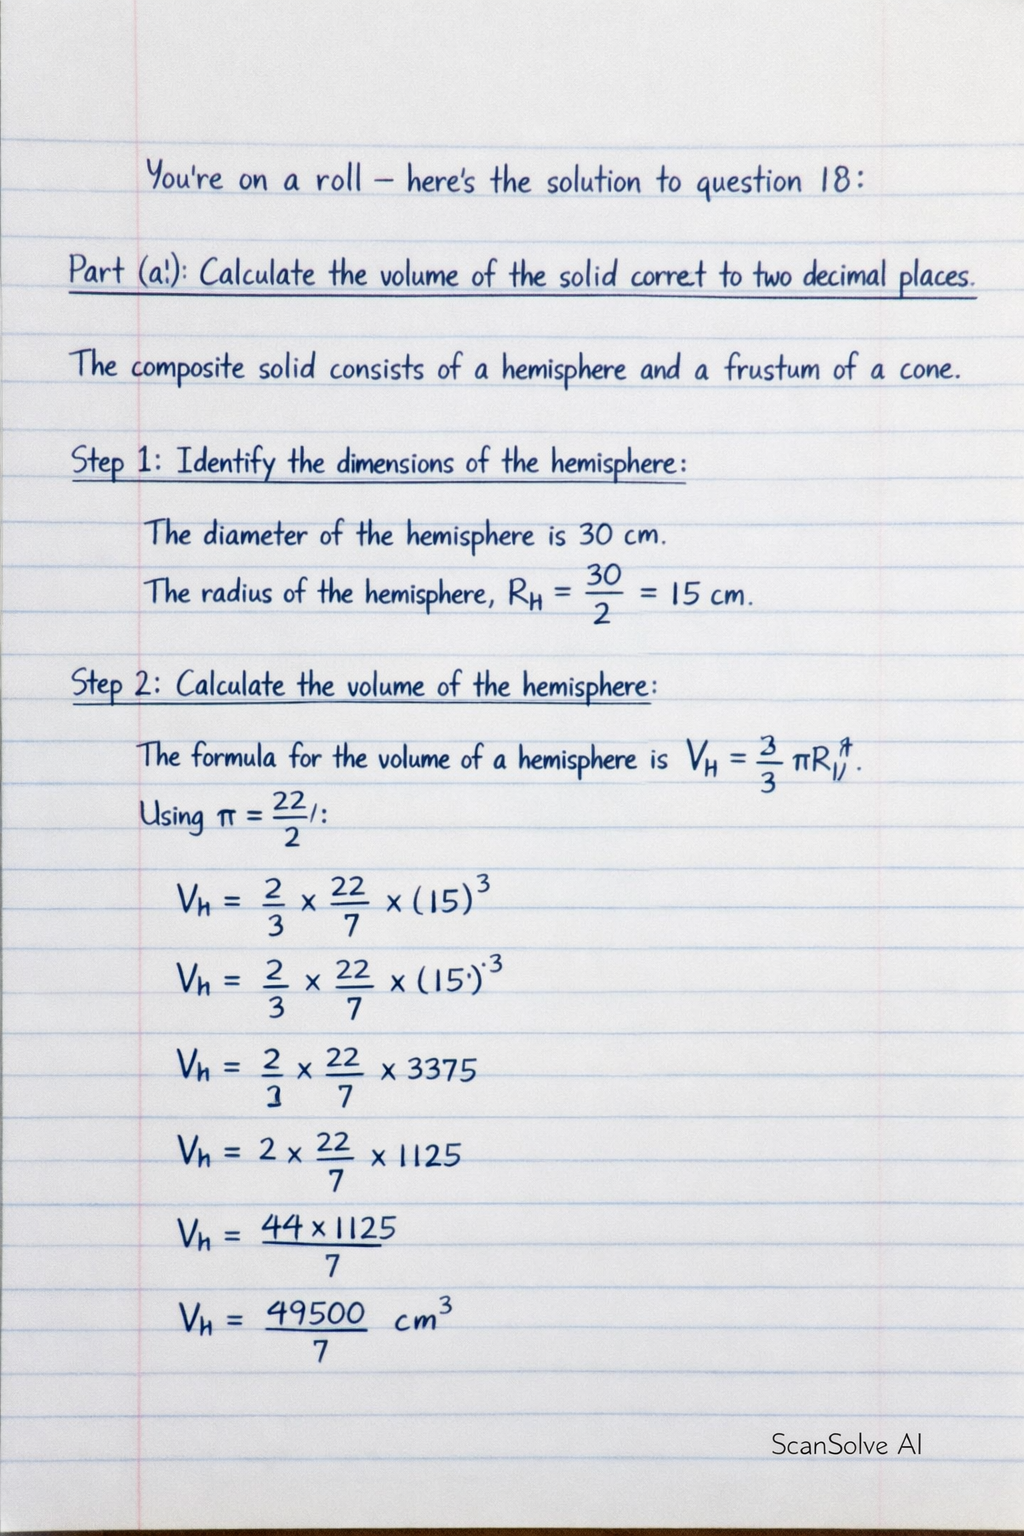 You're on a roll – here's the solution to question 18:
Part (a!): Calculate the volume of the solid corret to two decimal places.
The composite solid consists of a hemisphere and a frustum of a cone.
Step 1: Identify the dimensions of the hemisphere:
The diameter of the hemisphere is 30 cm.
The radius of the hemisphere, R_H = 30/2 = 15 cm.
Step 2: Calculate the volume of the hemisphere:
The formula for the volume of a hemisphere is V_H = 3/3 πR
Using π = 22/2 /:
V_H = 2/3 × 22/7 × (15)³
V_H = 2/3 × 22/7 × (15·)·³
V_H = 2/3 × 22/7 × 3375
V_H = 2 × 22/7 × 1125
V_H = 44 × 1125/7
V_H = 49500/7 cm³
ScanSolve AI